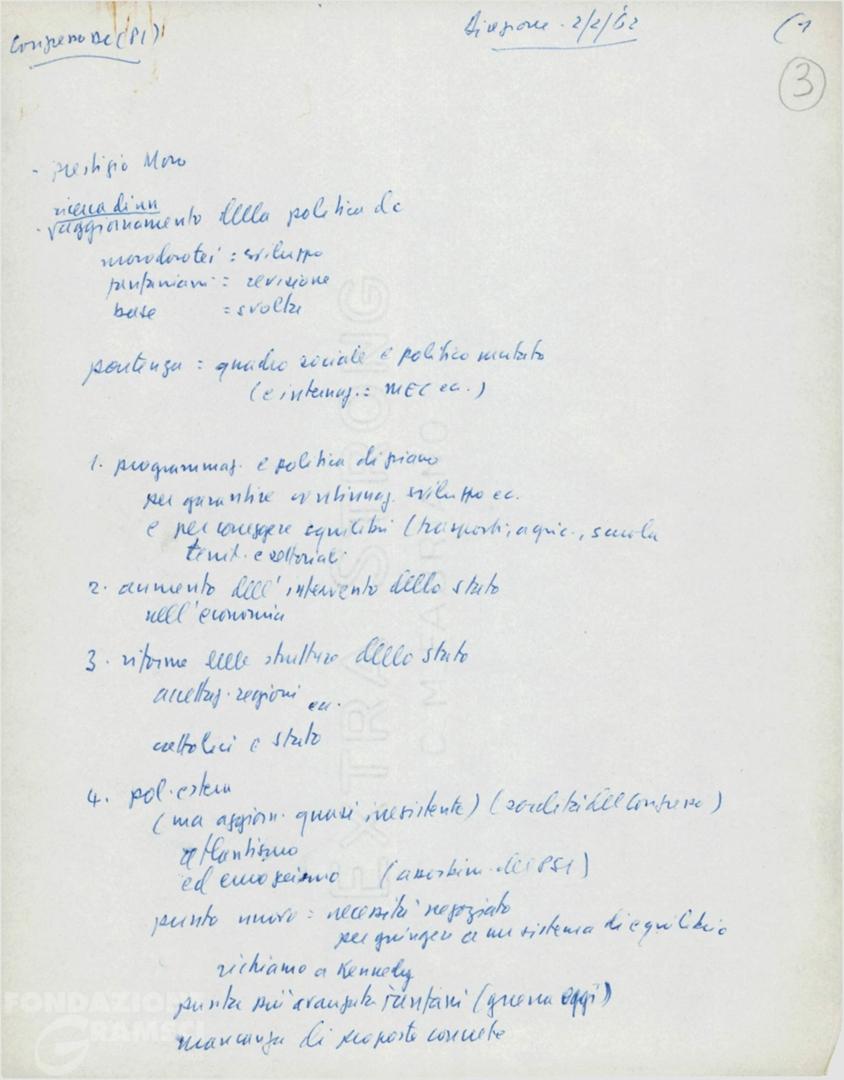 Congresso DC (PSI)
Direzione - 2/2/62
(1
3
- prestigio Moro
ricerca di un
- √aggiornamento della politica dc
morodorotei : sviluppo
fanfaniani : revisione
base = svolta
partenza = quadro sociale e politico mutato
(e internaz. : MEC ec.)
1. programmaz. e politica di piano
per garantire continuaz. sviluppo ec.
e per correggere squilibri (trasporti, agric., scuola
territ. e settoriali
2. aumento dell'intervento dello stato
nell'economia
3. riforme delle strutture dello stato
accettaz. regioni ec.
cattolici e stato
4. pol. estera
(ma aggiorn. quasi inesistente) (sordità del Congresso)
atlantismo
ed europeismo (assorbim. del PSI)
punto nuovo = necessità negoziato
per giungere a un sistema di equilibrio
richiamo a Kennedy
punta più avanzata Fanfani (guerra oggi)
mancanza di proposte concrete
EXTRA STRONG
C.M. FABRIANO
FONDAZIONE
GRAMSCI